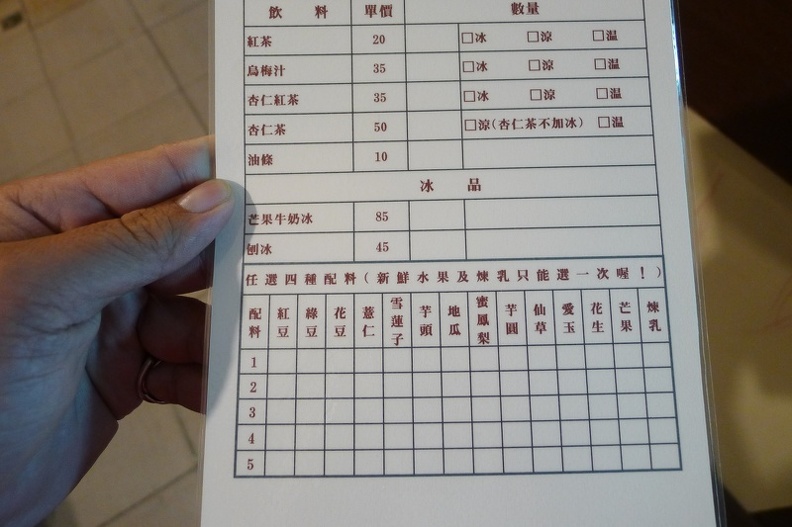 飲料 單價 數量
紅茶 20 □冰 □涼 □溫
烏梅汁 35 □冰 □涼 □溫
杏仁紅茶 35 □冰 □涼 □溫
杏仁茶 50 □涼(杏仁茶不加冰) □溫
油條 10
冰品
芒果牛奶冰 85
刨冰 45
任選四種配料(新鮮水果及煉乳只能選一次喔!)
配料 紅豆 綠豆 花豆 薏仁 雪蓮子 芋頭 地瓜 蜜鳳梨 芋圓 仙草 愛玉 花生 芒果 煉乳
1
2
3
4
5